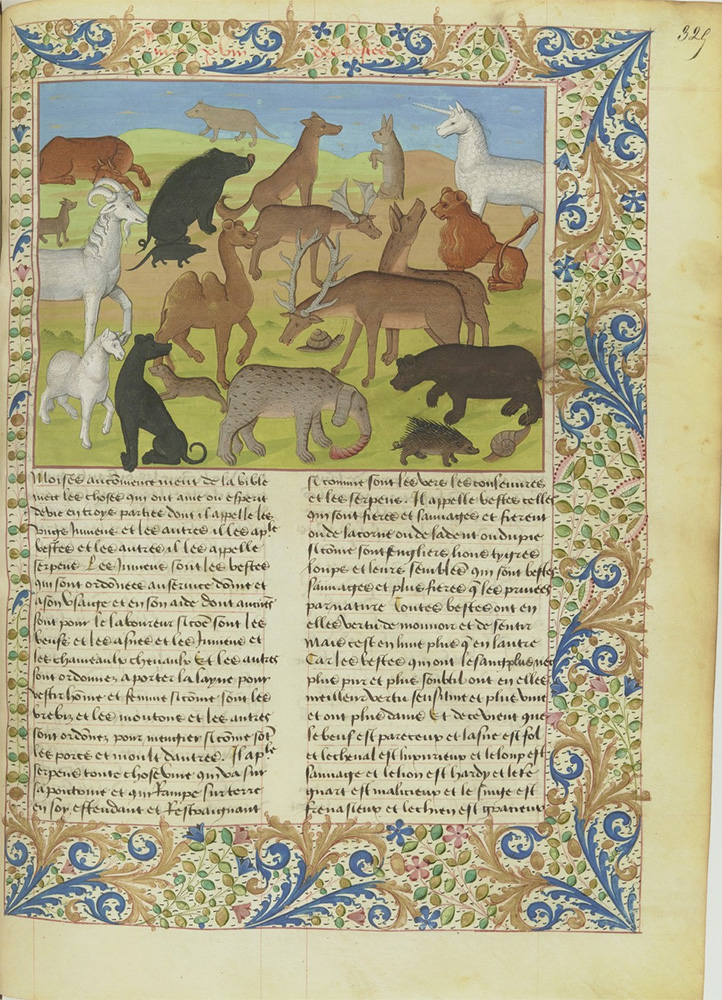 325
Moises au cõmencement de la bible
met les choses qui ont ame ou esperit
de vie en troys parties dont il appelle les
vngs Jumens et les autres il les apẽ
bestes et les autres il les appelle
serpens Les Jumens sont les bestes
qui sont ordõnees au seruice dõme et
a son vsaige et en son aide dont aucũs
sont pour le laboureur si cõe sont les
beufz et les asnes et les Jumens et
les chameaulx cheuaulx Et les autres
sont ordonnez a porter la layne pour
vestir hõme et femme si cõme sont les
brebiz et les moutons et les autres
sont ordõnez pour mengier si cõme sõt
les porcs et moult dautres. Il apẽ
serpens toute chose viue qui va sur
sa poitrine et qui Rampe sur terre
en soy estendant et Restraignant
si comme sont les vers les couleuures
et les serpens. Il appelle bestes celles
qui sont fieres et sauuages et fierent
ou de la corne ou de la dent ou du pie
si cõme sont sengliers lions tygres
loups et leurs sembles qui sont bestes
sauuages et plus fieres q̃ les priuees
par nature Toutes bestes ont en
elles vertu de mouuoir et de sentir
Mais cest en lune plus q̃ en lautre
Car les bestes qui ont le sang plus net
plus pur et plus soubtil ont en elles
meilleur vertu sensitiue et plus viue
et ont plus dauis Et de ce vient que
le beuf est pareceux et lasne est fol
et le cheual est luxurieux et le loup est
sauuage et le lion est hardy et le re
gnart est malicieux et le singe est
frenasieux et le chien est gracieux